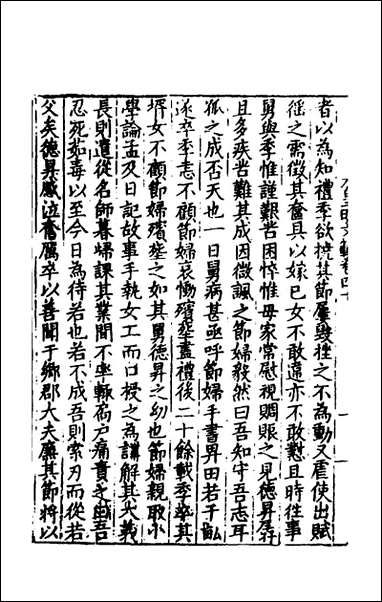 者以為知禮季欲撓其節屢毀挫之不為動又虐使出賦
徭之需徵其奮具以嫁已女不敢違亦不敢懟且時往事
舅與季惟謹艱苦困悴惟母家常慰視賙賑之見德昇孱
且多疾苦難其成因微諷之節婦毅然曰吾知守吾志耳
孤之成否天也一日舅病甚亟呼節婦手書畀田若千畝
遂卒季志不顧節婦哀慟殯塟盡禮後二十餘載季卒其
壻女不顧節婦殯塟之如其舅德昇之幼也節婦親取小
學論孟及日記故事手執女工而口授之為講解其大義
長則遣從名師暮歸課其業間不率輙扃戶痛責之曰吾
忍死茹毒以至今日為待若也若不成吾則索刃而從若
父矣德昇感泣奮厲卒以善聞于鄉郡大夫廉其節將以